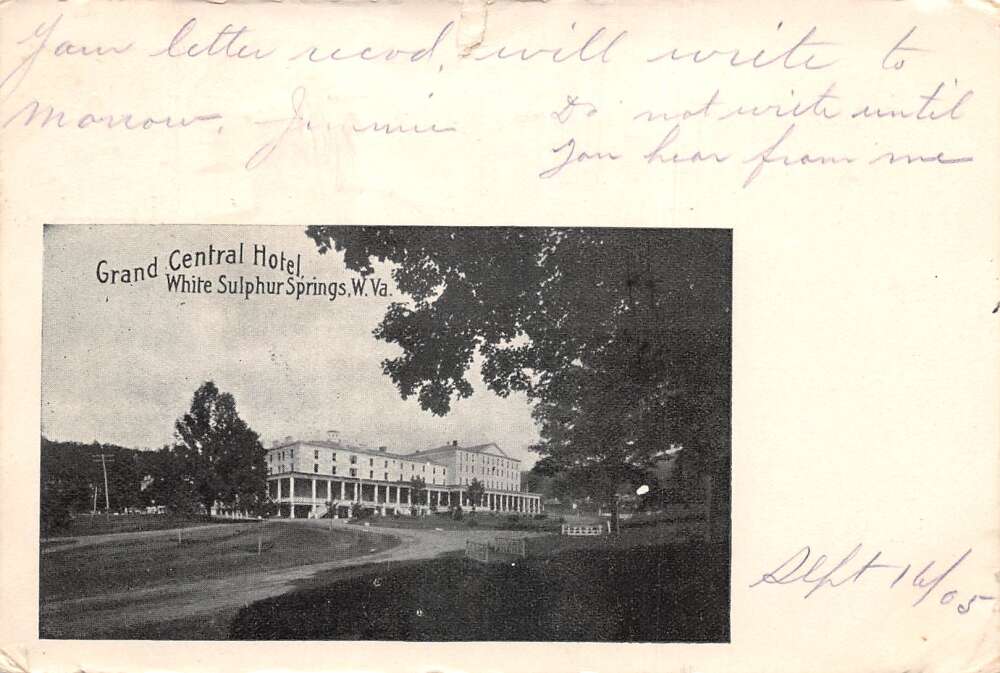 Your letter recvd, will write to
morrow. Jimmie
Do not write until
you hear from me
Grand Central Hotel,
White Sulphur Springs, W. Va.
Sept 16/05